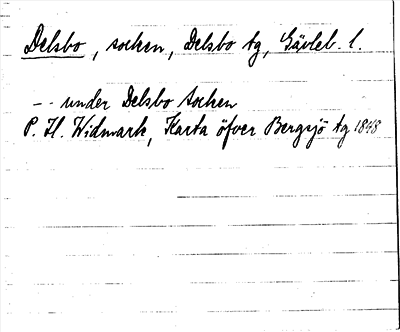 Delsbo, socken, Delsbo tg, Gävleb. l.
-- under Delsbo socken
P. H. Widmark, Karta öfver Bergsjö tg 1848